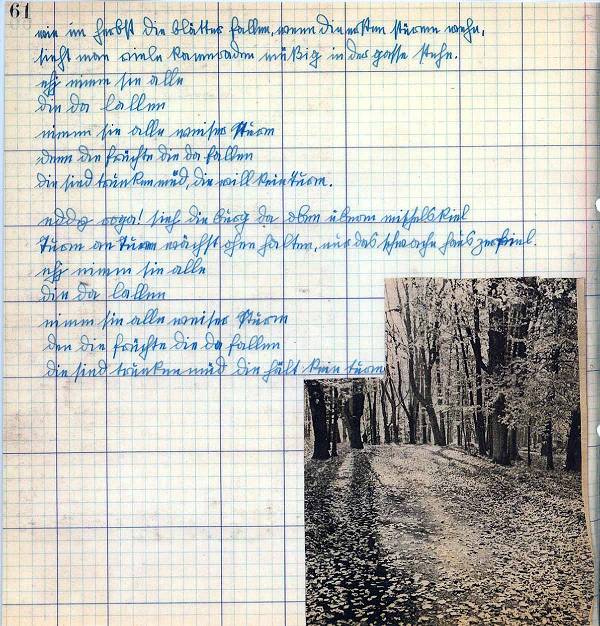 61
wie im herbst die blätter fallen, wenn die ersten stürme wehn,
sieht man viele kameraden müßig in der gasse stehn.
ehj nimm sie alle
die da lallen
nimm sie alle weiser Sturm
denn die früchte die da fallen
die sind trunkenmüd, die will kein Turm.
eddy sieh die burg da oben überm
Turm an Turm wächst ohne halten, nur das schwache haus zerfiel.
ehj nimm sie alle
die da lallen
nimm sie alle weiser Sturm
den die früchte die da fallen
die sind trunkenmüd die hält kein turm